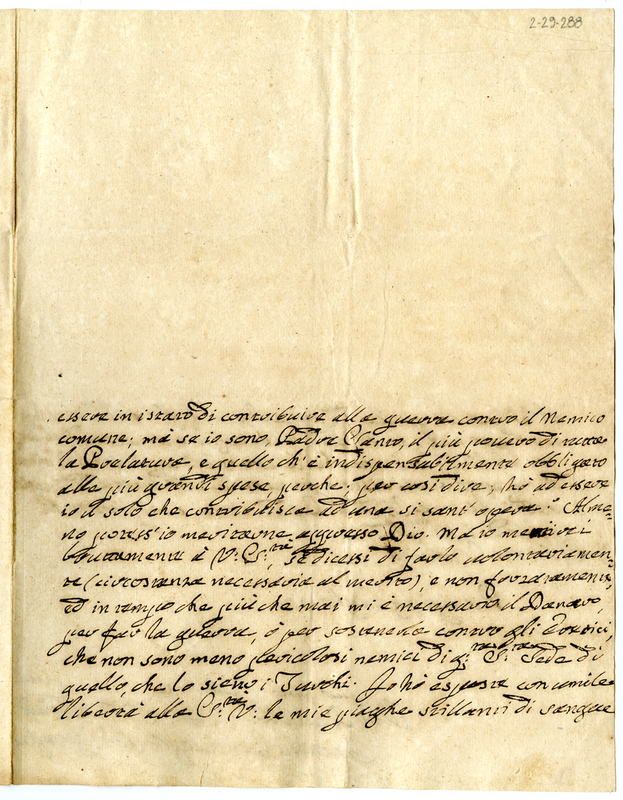 2-29-288
essere in istato di contribuire alla guerra contro il Nemico
comune; mà se io sono, Padre Santo, il più povero di tutta
la Prelatura, e quello ch'è indispensabilmente obbligato
alle più grandi spese, perche, per così dire, hò ad essere
io il solo che contribuisce ad una sì sant'opera? Alme=
no potess'io meritarne appresso Dio. Ma io mentirei
bruttamente à V: S.tà, se dicessi di farlo volontariamen=
te (circostanza necessaria al merito), e non forzatamente,
ed in tempo che più che mai mi è necessario il Danaro,
per far la guerra, ò per sostenerla contro gli Eretici,
che non sono meno pericolosi nemici di q.ta S.ta Sede di
quello, che lo sieno i Turchi. Io hò esposte con umile
libertà alla S.tà V: le mie piaghe stillanti di sangue